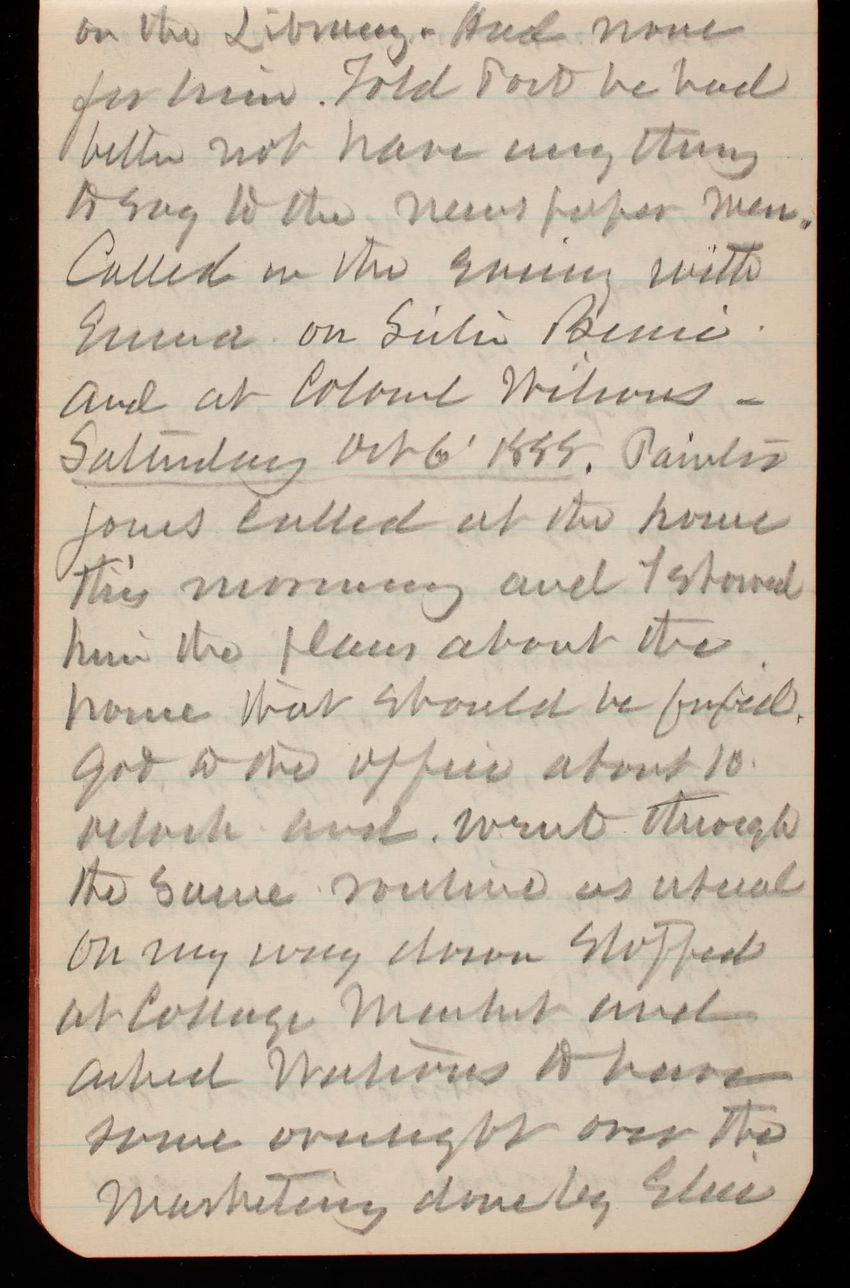 on the Library. Had none
for him. Told Port he had
better not have any thing
to say to the news paper men.
Called in the evening with
Emma on Bessie
and at Colonel Wilsons -
Saturday Oct 6' 1888. Painter
Jones called at the house
this morning and I showed
him the places about the
house that should be fixed.
Got to the office about 10
oclock and went through
the same routine as usual
On my way down stopped
at Cottage Market and
asked Watkins to have
some oversight over the
marketing done by Elsie